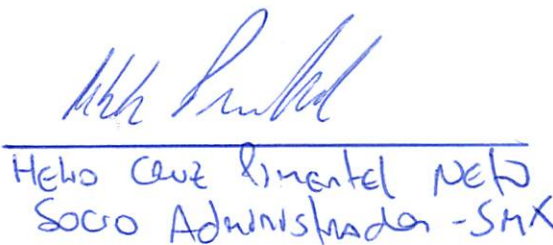 Helio Cruz Pimentel Neto
Socio Administrador - SMX